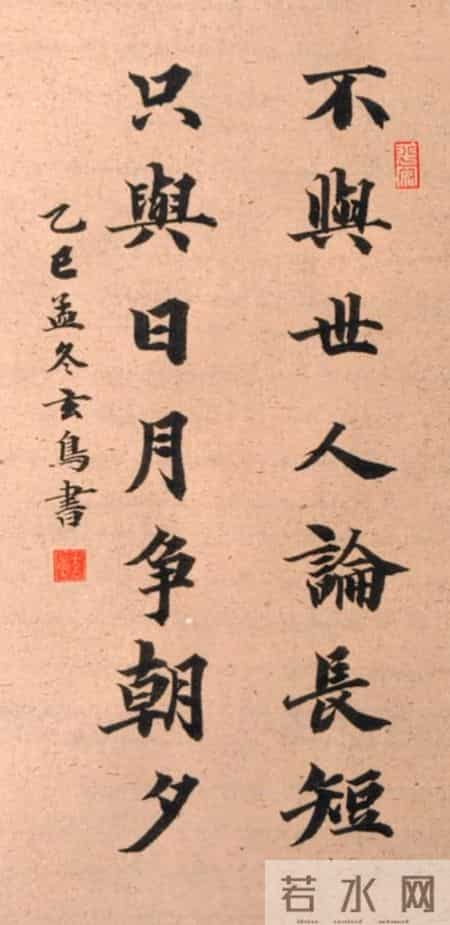 不與世人論長短
只與日月争朝夕
乙巳孟冬玄鳥書
若水网